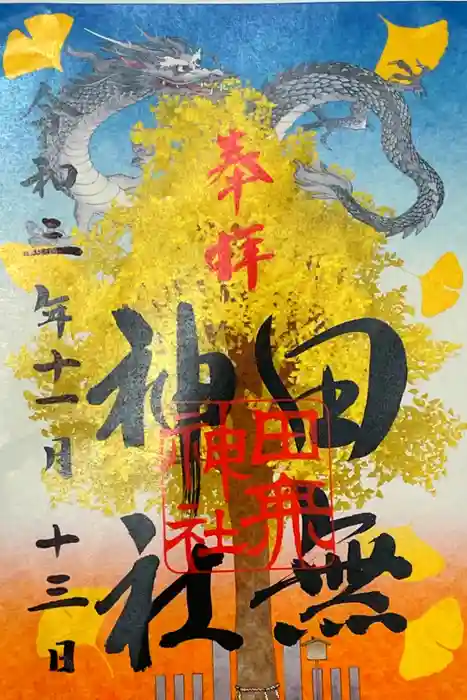 奉拝
田無
神社
田無
神社
令和三年十一月十三日